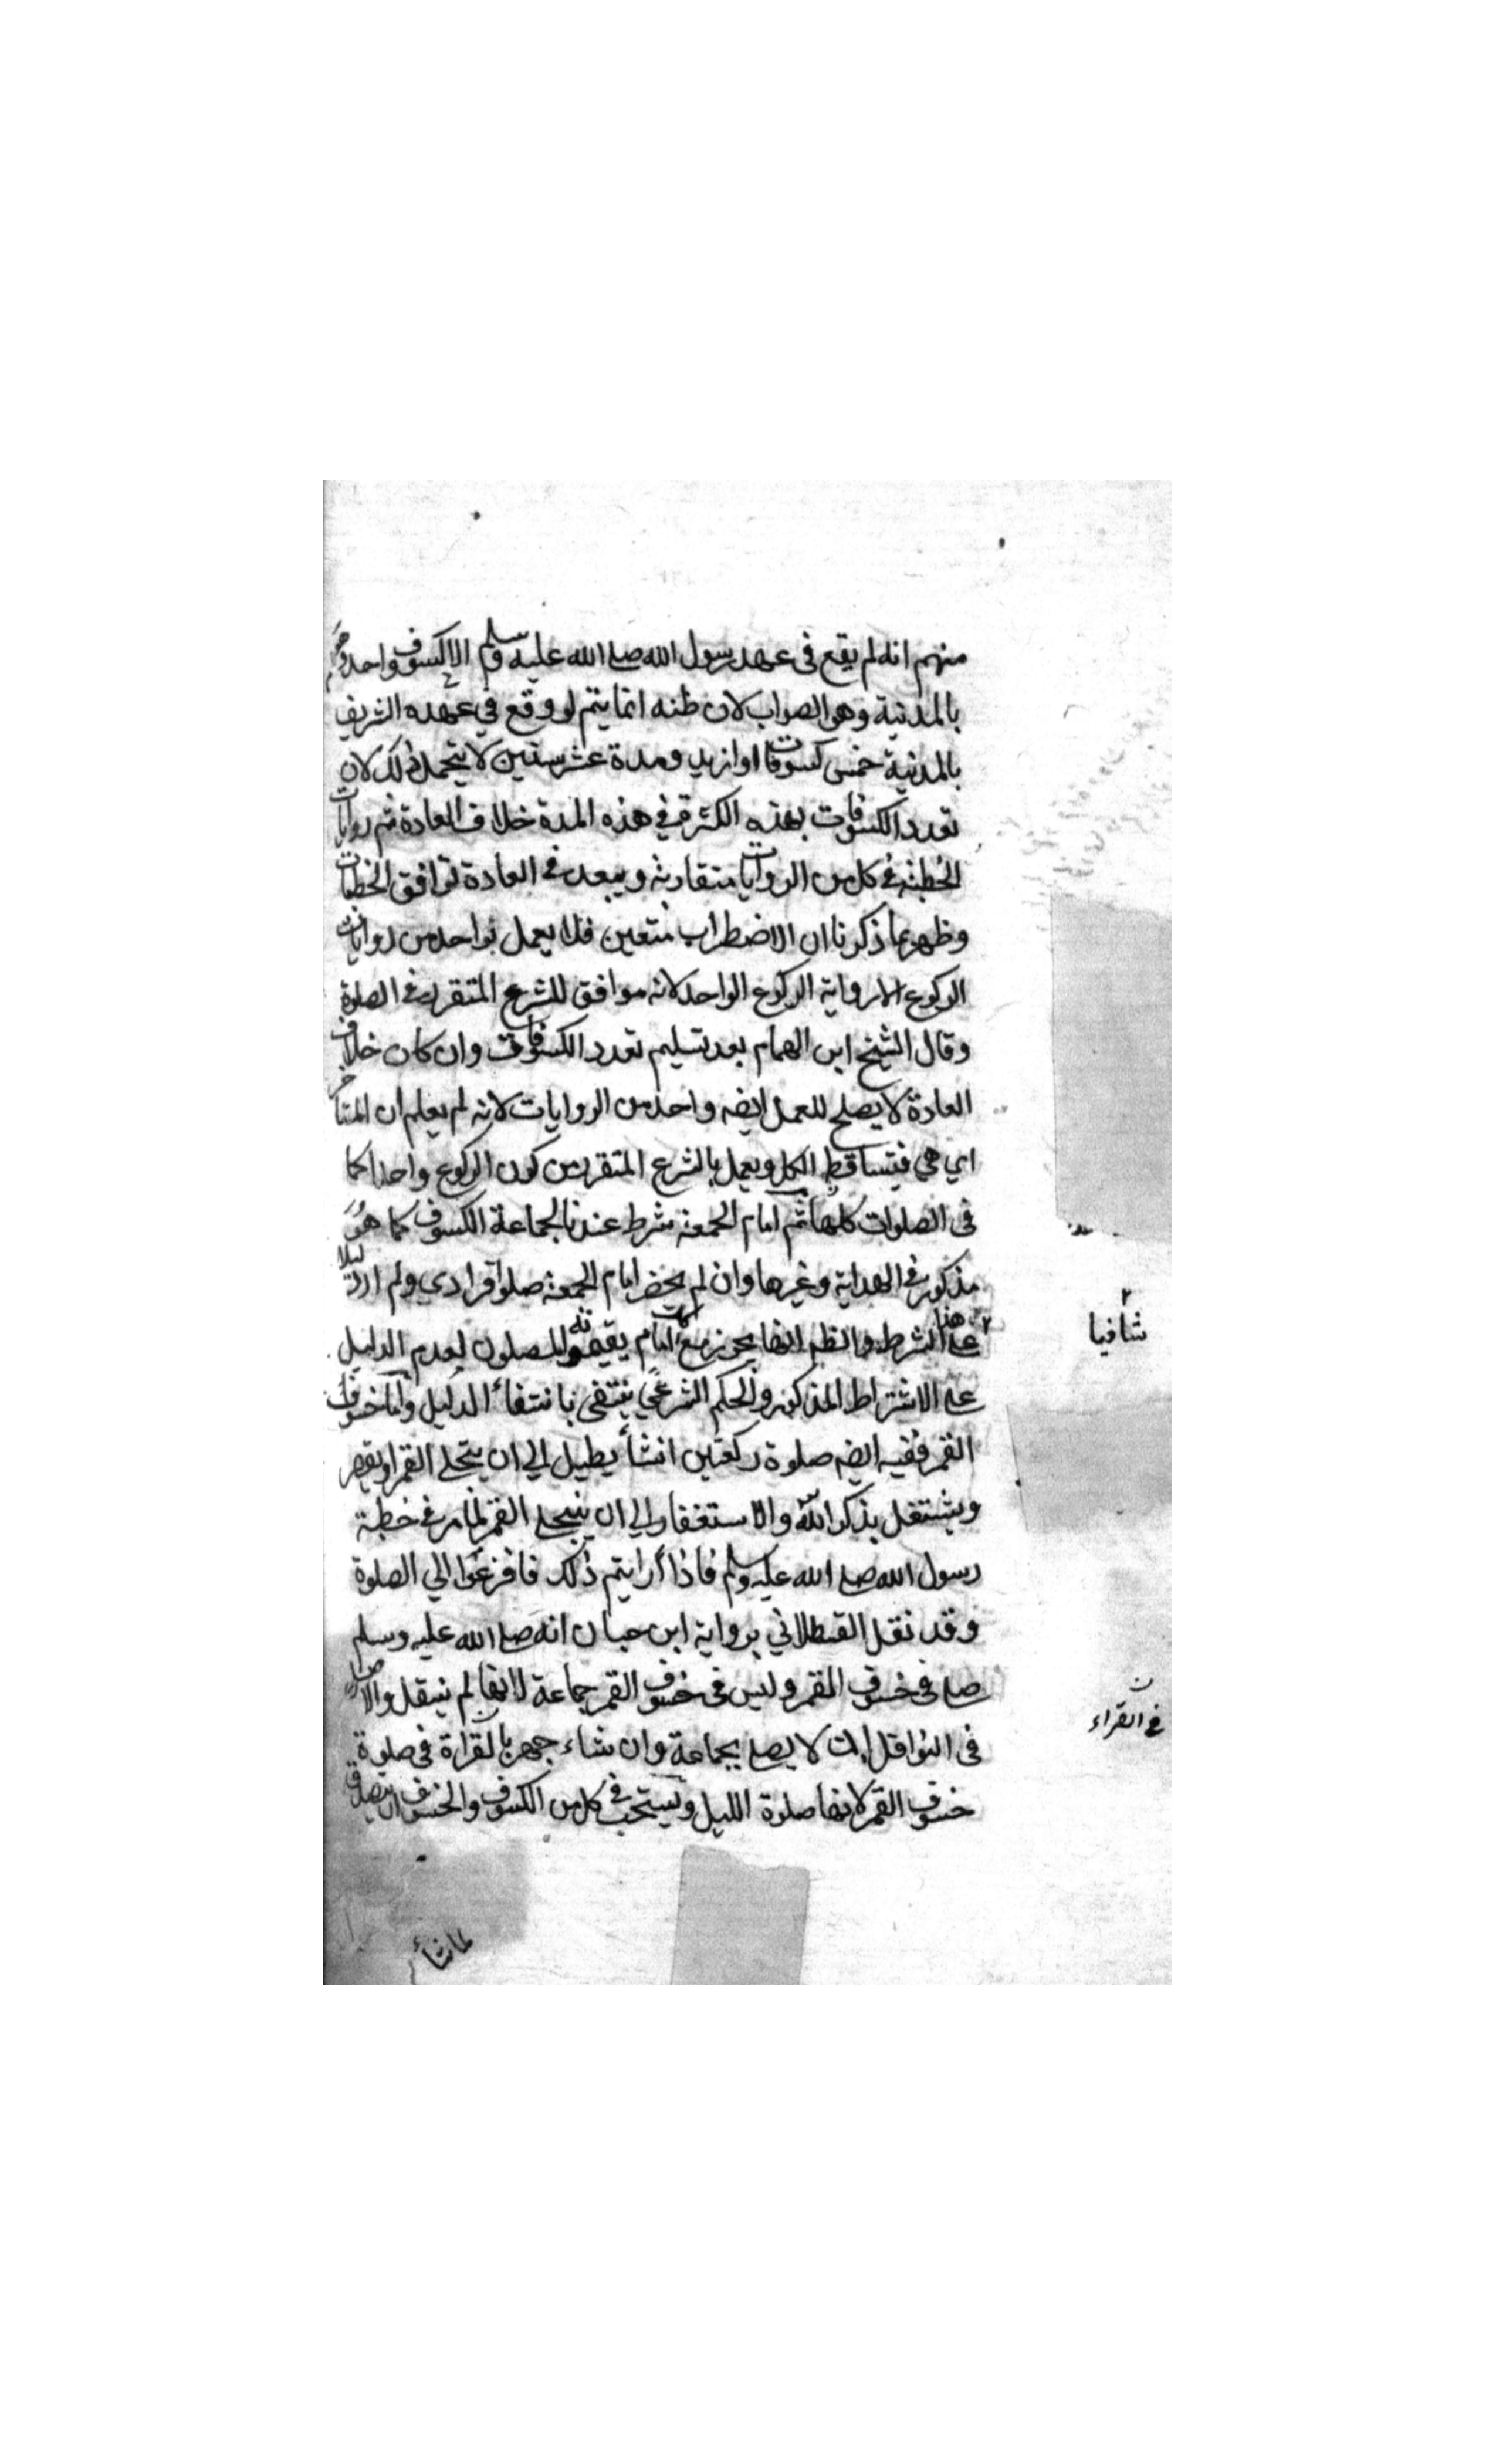 منهم انه لم يقع فى عهد رسول الله صلے الله عليه وسلم الا كسوف واحد
بالمدنية وهو الصواب لان ظنه انما يتم لو وقع في عهده الشريف
بالمدنية خمس كسوفات او ازيد ومدة عشر سنين لا يتحمل ذلك لان
تعدد الكسوفات بهذه الكثرة في هذه المدة خلاف العادة ثم روايات
الخطبة في كل من الروايات متقاربة ويبعد في العادة توافق الخطبات
وظهر بما ذكرنا ان الاضطراب متعين فلا يعمل بواحد من روايات
الركوع الا رواية الركوع الواحد لانه موافق للشرع المتقرر في الصلوة
وقال الشيخ ابن الهمام بعد تسليم تعدد الكسوفات وان كان خلاف
العادة لا يصلح للعمل ايضه واحد من الروايات لانه لم يعلم ان المتأخر
اي هي فيتساقط الكل ويعمل بالشرع المتقرر من كون الركوع واحدا كما
فى الصلوات كلها ثم امام الجمعة شرط عندنا لجماعة الكسوف كما هو
مذكور في الهداية وغيرها وان لم يحضر امام الجمعة صلوا فرادي ولم ار دليلا
شافيا
علے هذا الشرط والظهر انها يجوز مع امام يقيمه المصلون لعدم الدليل
علے الاشتراط المذكور والحكم الشرعي ينتفى بانتفاء الدليل واما خسوف
القمر ففيه ايضه صلوة ركعتين انشأ يطيل الي ان يتجلے القمر او يقصر
ويشتغل بذكر الله والاستغفار الي ان ينجلے القمر لما مر في خطبة
رسول الله صلے الله عليه وسلم فاذا أرايتم ذلك فافزعوا الي الصلوة
وقد نقل القسطلاني برواية ابن حبان انه صلے الله عليه وسلم
صلے في خسوف القمر وليس فى خسوف القمر جماعة لانها لم ينقل والاصل
فى النوافل ان لا يصلے بجماعة وان شاء جهر بالقراة فى صلوة
فى القراء
خسوف القمر لانها صلوة الليل ويستحب في كل من الكسوف والخسوف ان يتصدق
ما شاء